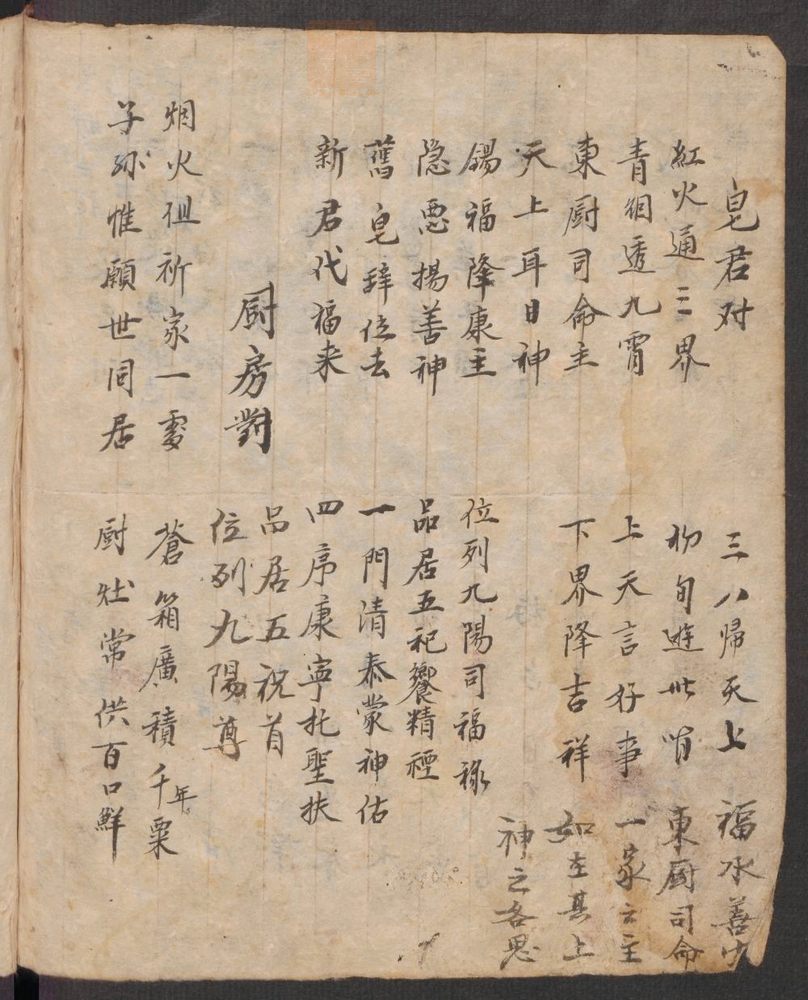 皂君对
紅火通三界
青烟透九霄
東厨司命主
天上耳目神
錫福降康主
隐恶揚善神
舊皂辞位去
新君代福来
厨房對
烟火祖祈家一處
子孫惟願世同居
三八歸天上
初旬遊世間
上天言好事
下界降吉祥
位列九陽司福祿
品居五祀饗精禋
一門清泰蒙神佑
四序康寧托聖扶
品居五祝首
位列九陽尊
蒼箱廣積千年粟
厨灶常供百口鮮
福水善
東厨司命
一家之主
如在其上
神之各思